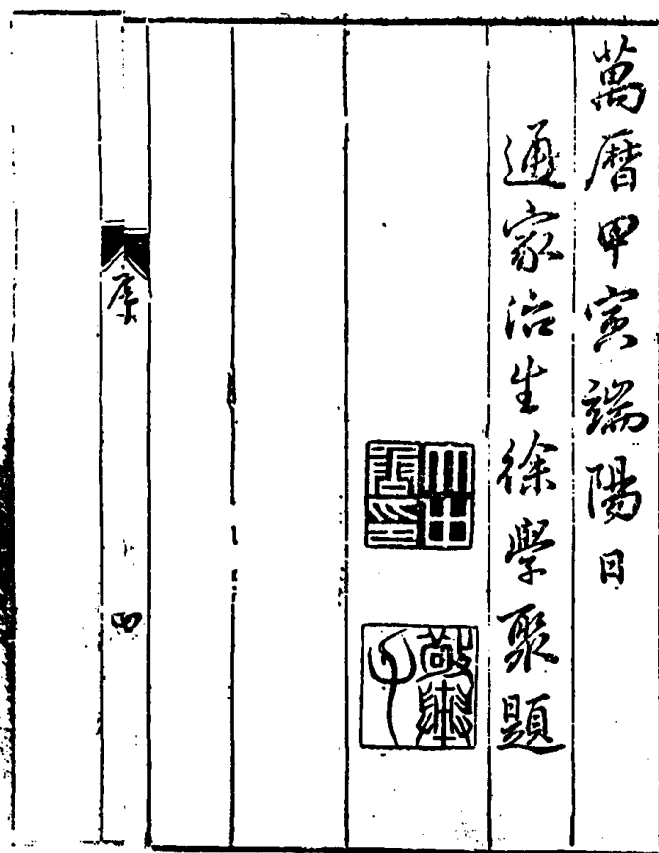 萬曆甲寅端陽日
通家治生徐學聚題
序
四